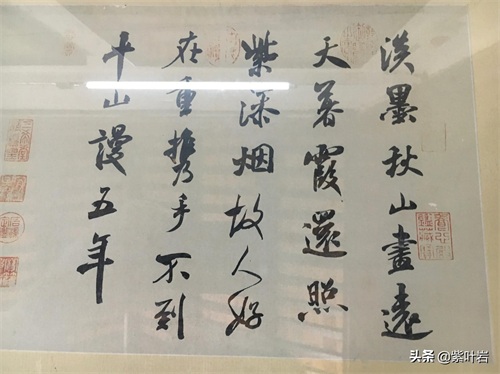 淡墨秋山畫遠
天暮霞還照
紫添烟故人好
在重携手不到
平山謾五年
头条 @紫叶岩